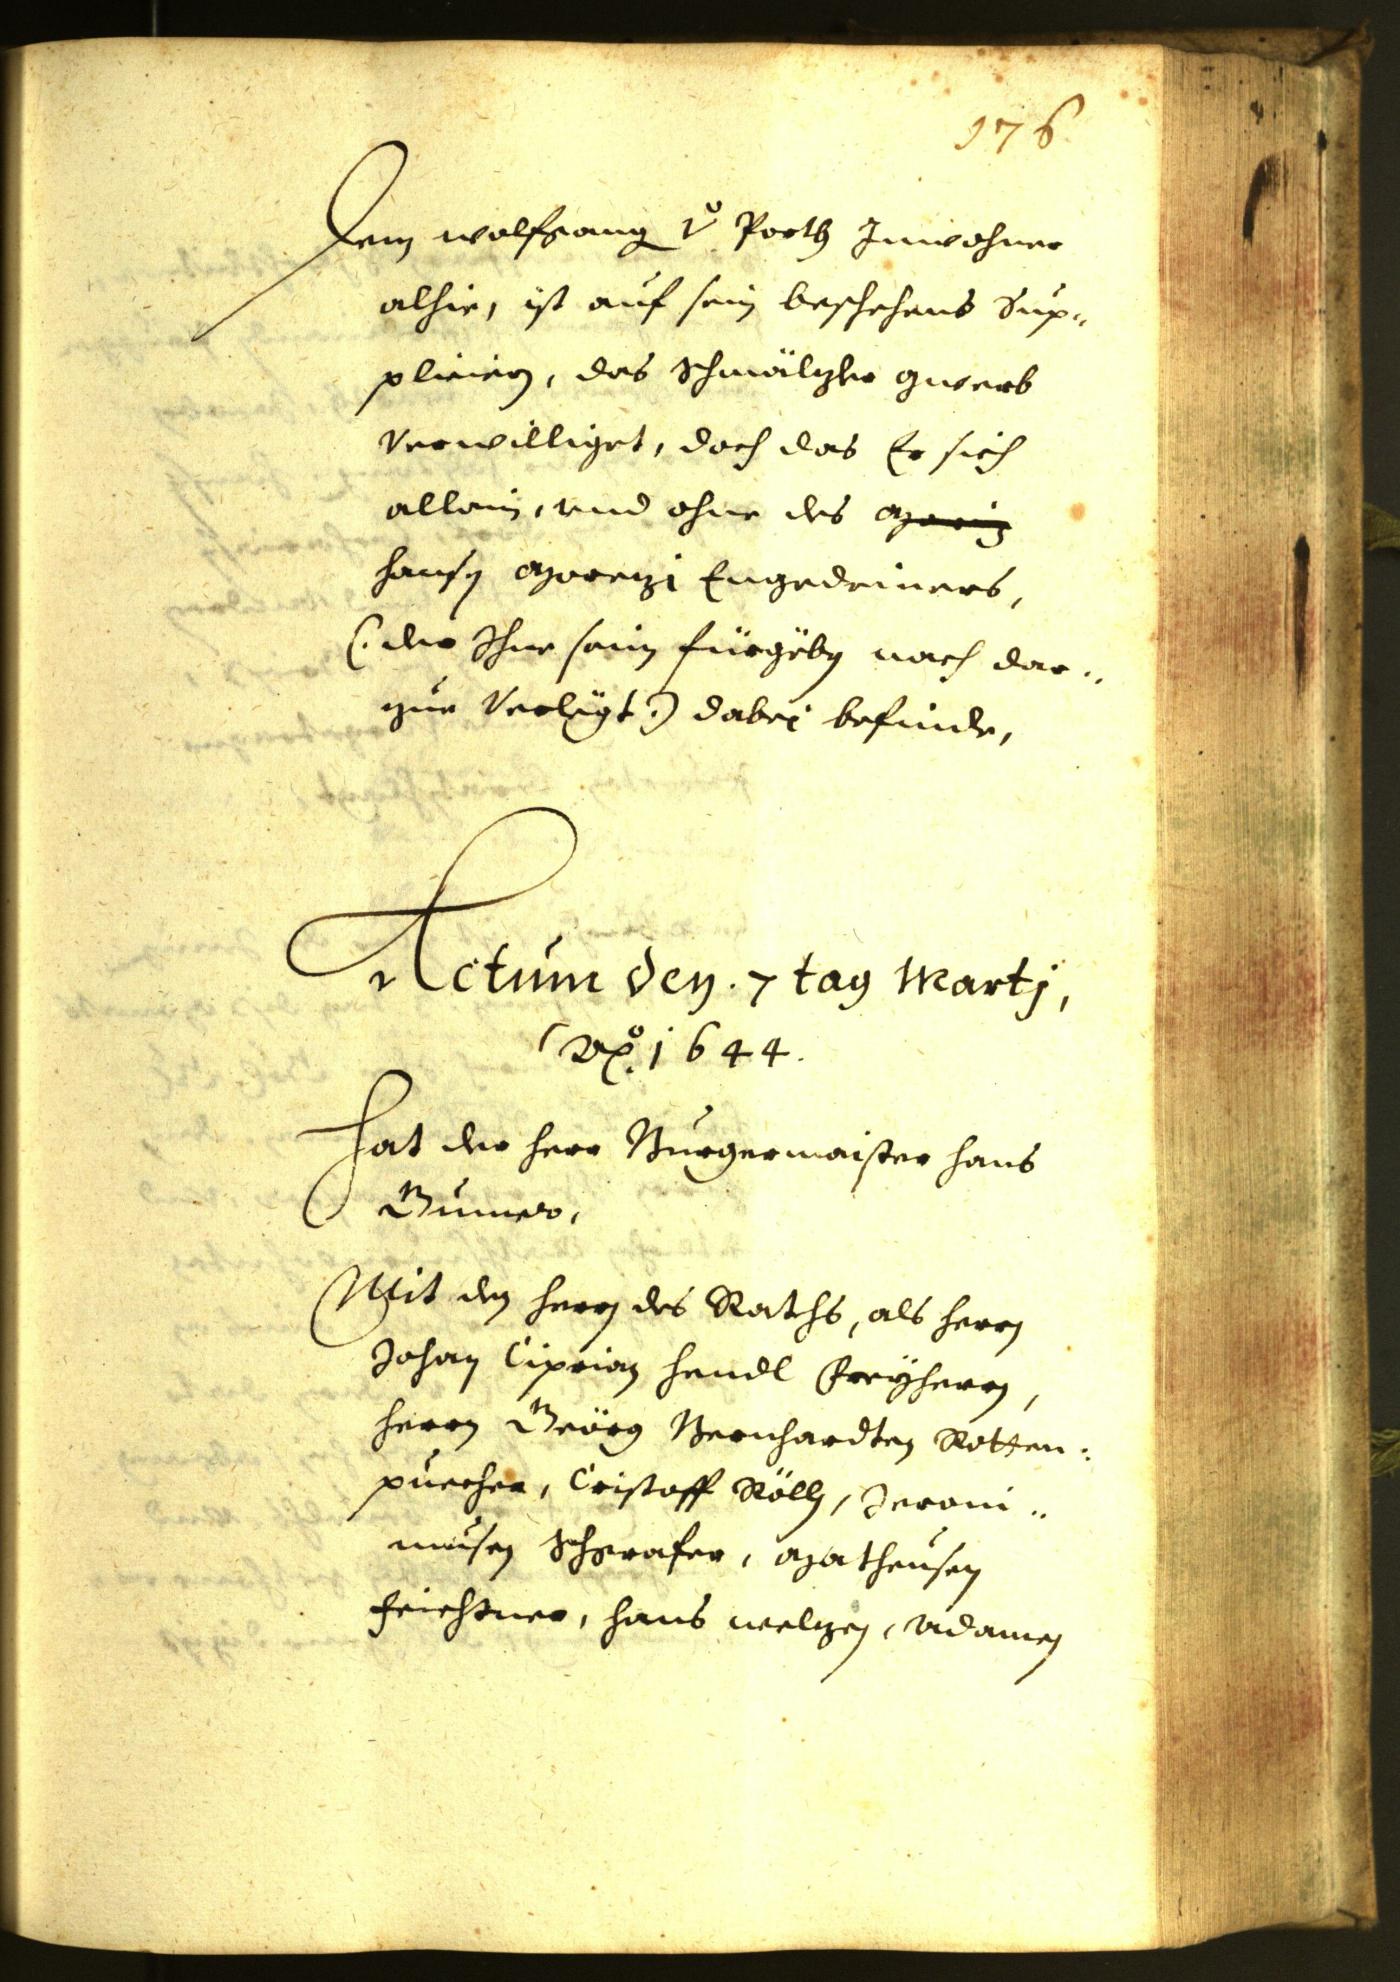 176
Dem wolfgang v° Porth Inwohner
alhie, ist auf sein beschehens Sup„
plicirn, das Schmälzler gwerb
Verwilliget, doch das Er sich
allain, vnd ohne des
hansn Morezi Engedeiners,
(: der Ihne sein fürgebn nach dar„
zue Verlegt :) dabei befinde,
Actum den . 7 tag Martj,
Aō. 1644.
Hat der herr Burgermaister hans
Gumer,
Mit den herrn des Raths, als herrn
Johan Ciprian hendl Freyherrn,
herrn Geörg Bernhardten Rotten:
puecher, Cristoff Röll, Jeroni„
musen Schgrafer, Matheusen
Feichtner, hans welzen, Adamen